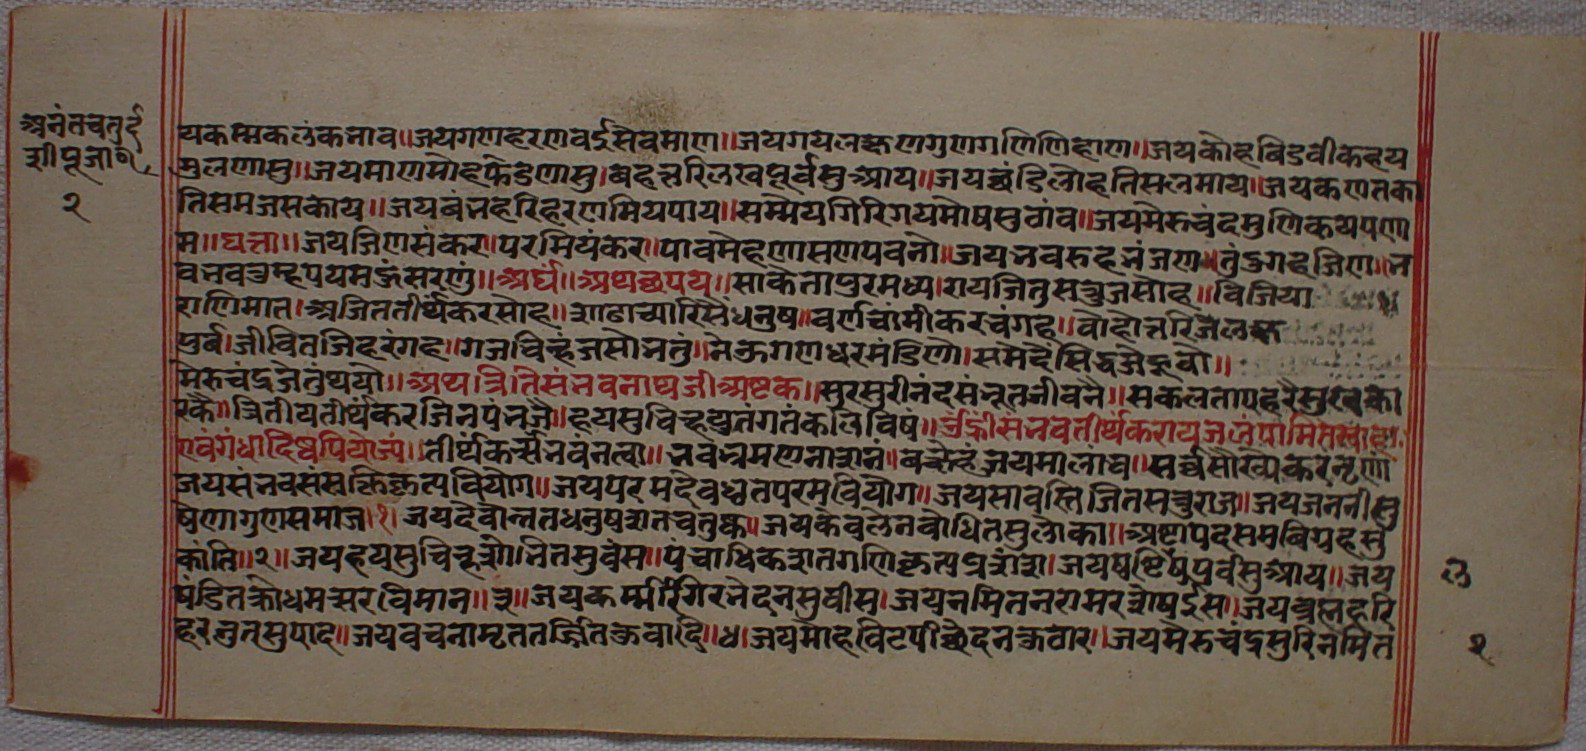 अनंतचतुर्द
शीपूजा
२
यकम्मकलंकभाव॥जयगणहरणवईसेवमाण॥जयगयलह्मणगुणगणिणिहाण॥जयकोहबिडवीकहय
मुलणासु॥जयमाणमोहफेडणासु।बहत्तरिलखपूर्वसुआय॥जयछंडिलोहतिसलमाय॥जयकणतका
तिसमजसकाय॥जयबंभहरिहरणमियपाय॥सम्मेयगिरिगयमोषसुठांव॥जयमेरुचंदमुणिकयपणा
म॥घत्ता॥जयजिणसंकर।परमियंकर।पावमेहणासणपवनो॥जयभवरुहभंजण॥तुंऽगहजिण॥भ
वभवतुम्हपयमऊंसरणुं॥अर्घं॥अथछपय॥साकेतापुरमध्य।रायजितुसत्रुजसोह॥विजिया
राणिमात।अजिततीर्थंकरसोह॥शाढाच्यारिसैंधनुष॥वर्णचांमीकरचंगह॥वोहोत्तरिजेलह्म
पुर्व।जीवितजिहरंगह।गजचिन्हंजसोभतुं।नेऊगणधरमंडिणो।समेदेंसिद्धजेहूवो॥
मेरुचंद्रजेतुंथयो॥अथत्रितिसंभवनाथजीअष्टक॥सुरसुरीनंदसंभूतजीवनै॥सकलतापहरैसुखका
रकै॥त्रितीयतीर्थंकरजिनपंनजे॥हयसुचिन्हद्युतंगतंकलिविषं॥ॐह्रींसंभवतीर्थंकरायजलंपामितिस्वाहा
एवंगंधादिष्वपियोज्यं॥तीर्थकर्त्संभवंनत्वा॥भवभ्रमणनाशनं॥वक्ष्येहंजयमालाव॥सर्व्वसौख्यकरंनृणां
जयसंभवसंसक्तिकृत्पवियोग॥जयपरमदेवधृतपरमवियोग॥जयसावस्तिजितसत्रुराज॥जयजननीसु
षेणागुणसमाज।१।जयदेवोन्नतधनुषशतचतुष्क॥जयकेवलेनबोधितसुलोका॥अष्टापदसमविग्रहसु
कांति॥२॥जयहयसुचिन्हशोभितसुवंस॥पंचाधिकशतगणिकृत्पप्रशंश।जयषष्टिषुपुर्वसुआय॥जय
षंडितक्रोधमत्सरविमान॥३॥जयकर्म्मगिरनेदनसुवीस।जयनमितनरामरशेषईस॥जयब्रह्महरि
हरनुतसुपाद॥जयवचनामृततर्जितकुवादि॥४।जयमोहविटपीछेदनकुठार।जयमेरुचंद्रसुरिनमित
२